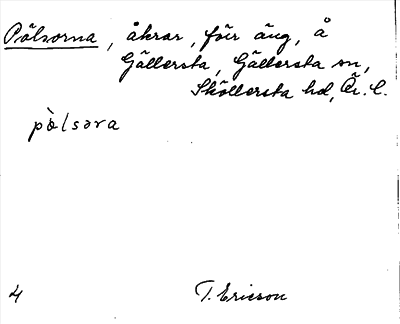 Pölsorna, åkrar, förr äng, å
Gällersta, Gällersta sn,
Sköllersta hd, Ör. l.
pò̀lsəra
4 T. Ericson